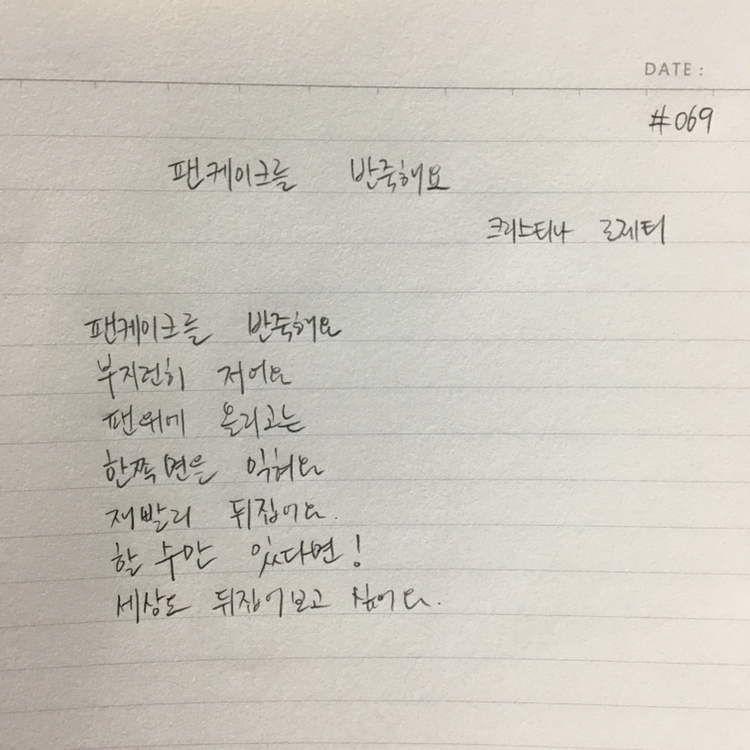 DATE :
#069
팬케이크를 반죽해요
크리스티나 로제티
팬케이크를 반죽해요
부지런히 저어요
팬위에 올리고는
한쪽 면은 익혀요
재빨리 뒤집어요.
할 수만 있다면!
세상도 뒤집어보고 싶어요.